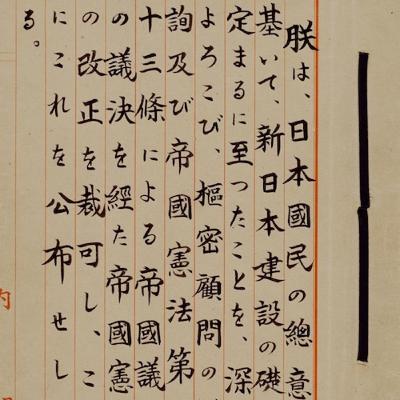 朕は、日本國民の總意
基いて、新日本建設の礎
定まるに至つたことを、深
よろこび、樞密顧問の
詢及び帝國憲法第
十三條による帝國議
の議決を經た帝國憲
の改正を裁可し、こ
にこれを公布せし
る。